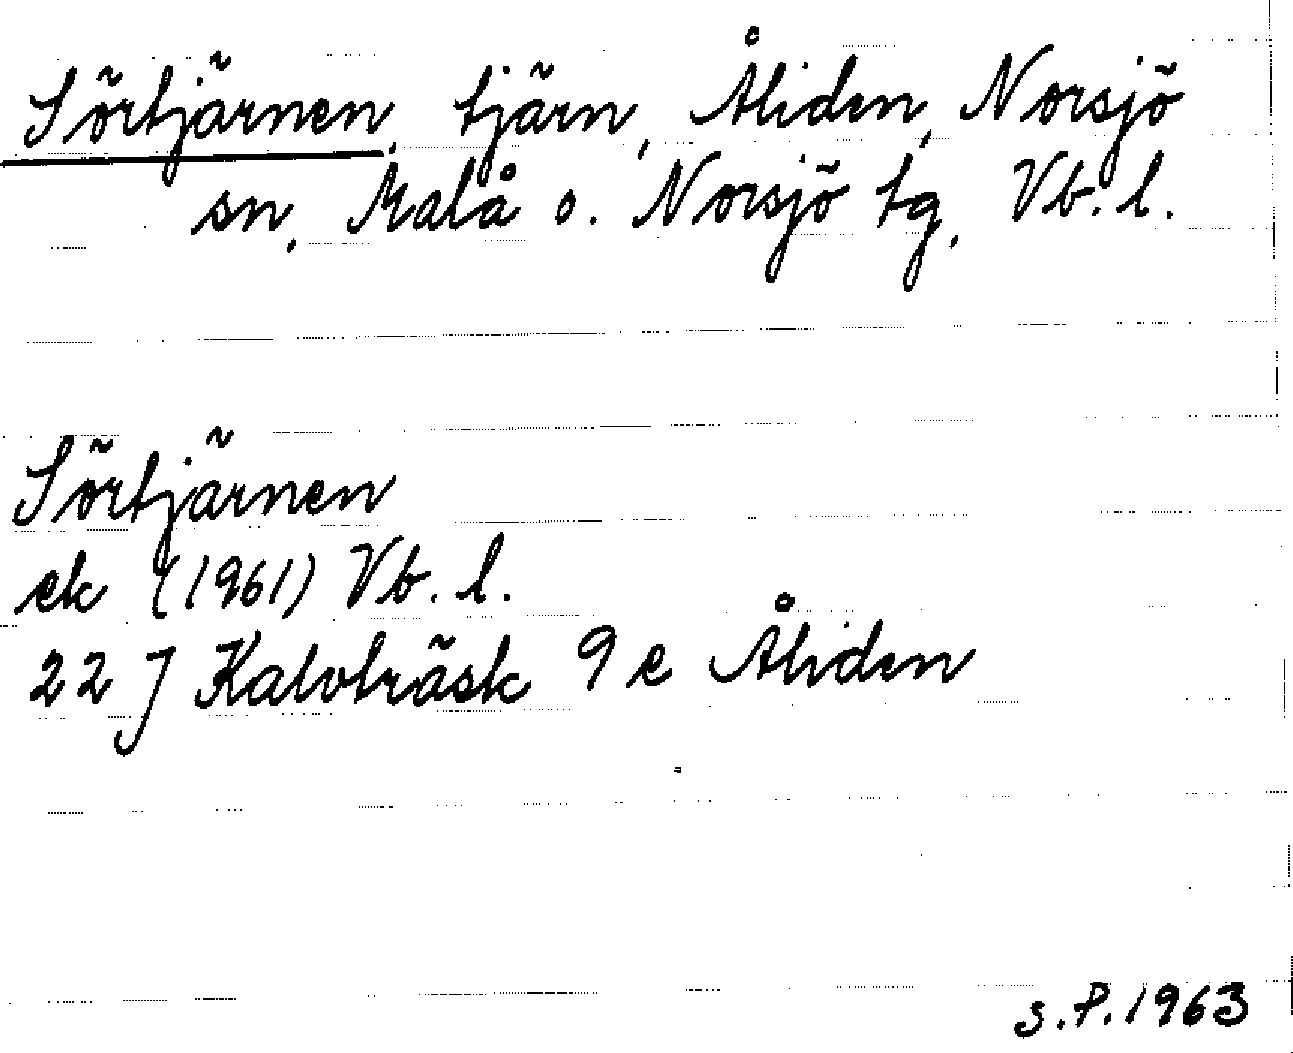 Sörtjärnen, tjärn, Åliden, Norsjö
sn, Malå o. Norsjö tg, Vb. l.
Sörtjärnen
ek (1961) Vb. l.
22 J Kalvträsk 9 e Åliden
S.P. 1963